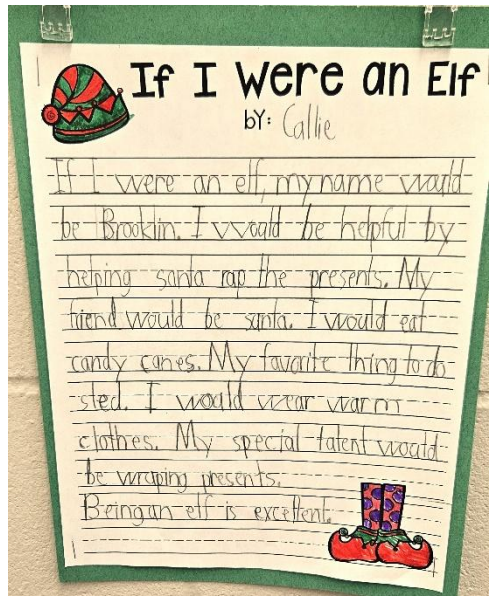 If I Were an Elf
bY: Callie
If I were an elf, my name would
be Brooklin. I would be helpful by
helping santa rap the presents. My
friend would be santa. I would eat
candy canes. My favorite thing to do
sled. I would wear warm
clothes. My special talent would
be wraping presents.
Being an elf is excellent.